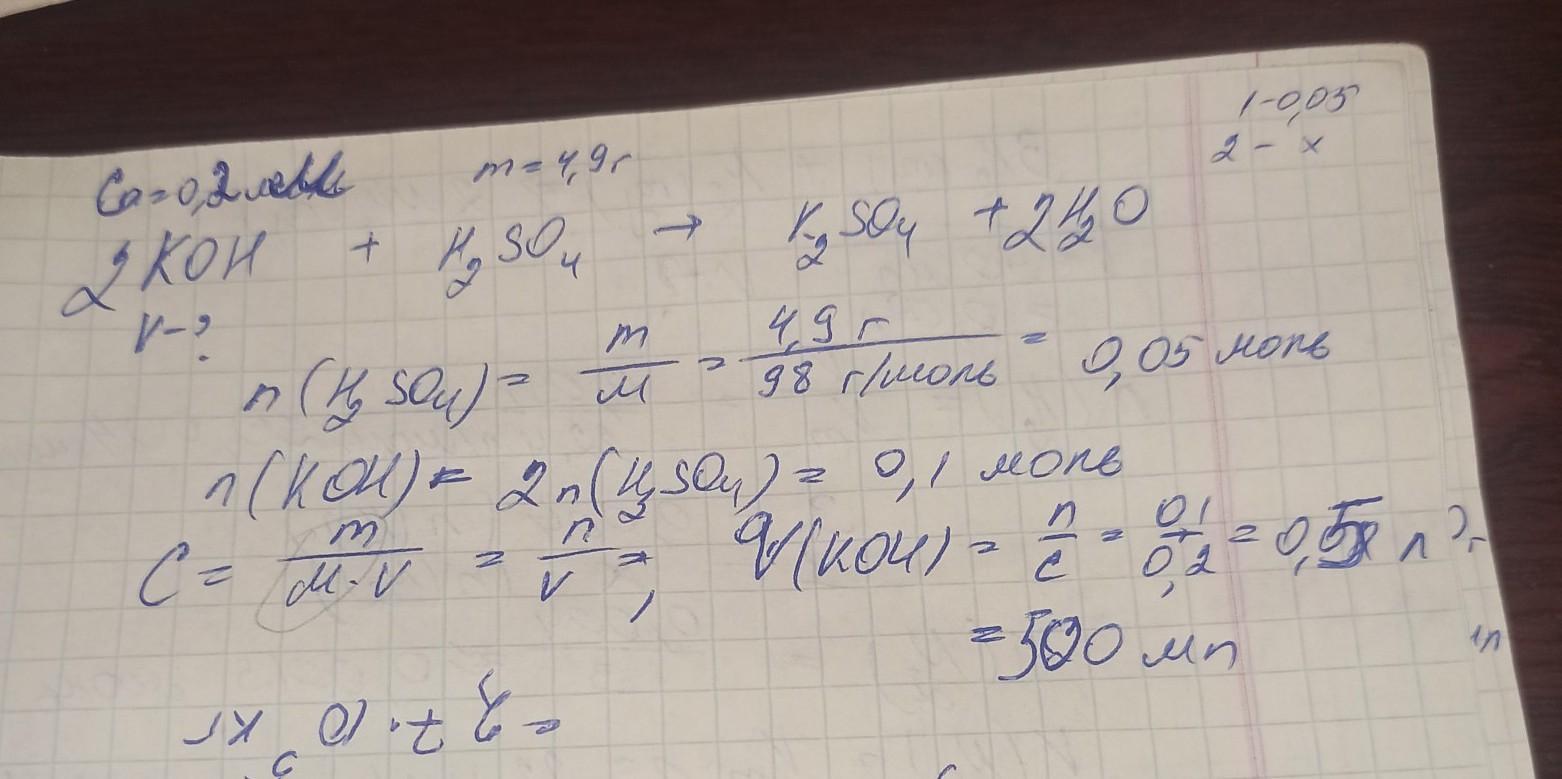 1-0,05
2 - x
Cα=0,2 m=4,9г
2KOH + H2SO4 → K2SO4 + 2H2O
V-?
n(H2SO4) = m/M = 4,9 г/98 г/моль = 0,05 моль
n(KOH) = 2n(H2SO4) = 0,1 моль
C = m/M·V = n/V = , V(KOH) = n/c = 0,1/0,2 = 0,5 л
= 500 мл